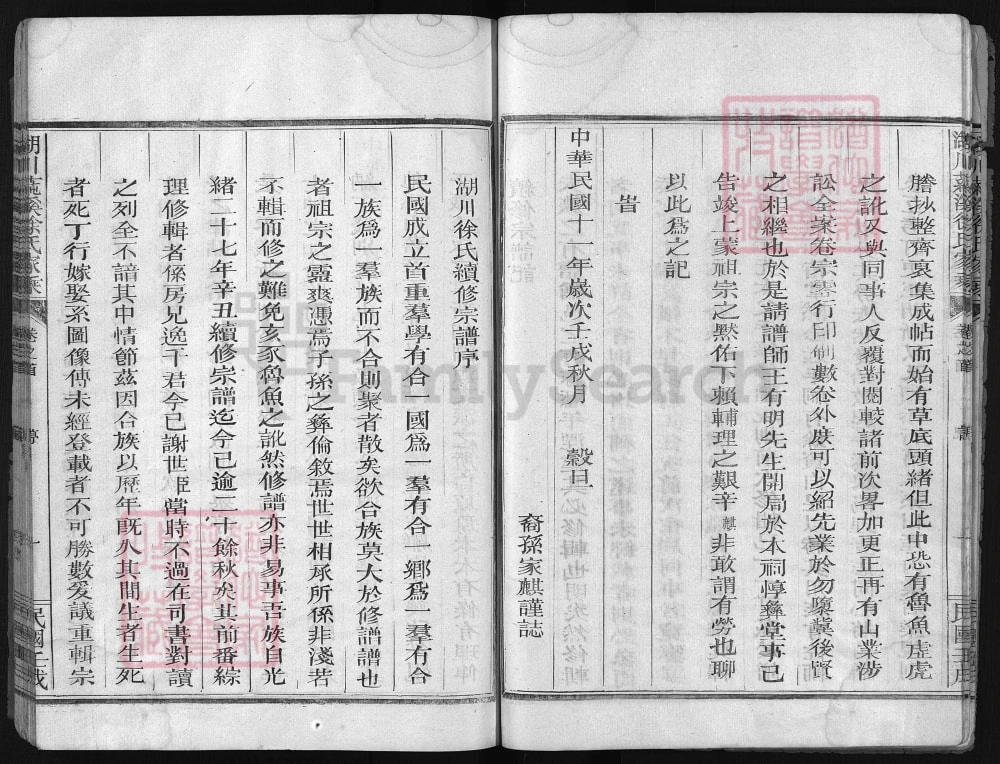 謄抄整齊裒集成帖而始有草底頭緒但此中恐有魯魚虛虎
之訛又與同事人反覆對閱較諸前次畧加更正再有山業涉
訟全案卷宗零行印刷數卷外庶可以紹先業於勿隳冀後賢
之相繼也於是請譜師王有明先生開局於本祠惇彝堂事已
告竣上蒙祖宗之黙佑下賴輔理之艱辛麒非敢謂有勞也聊
以此爲之記
旹
中華民國十一年歲次壬戌秋月 穀旦
裔孫家麒謹誌
湖川徐氏續修宗譜序
民國成立首重羣學有合一國爲一羣有合一鄉爲一羣有合
一族爲一羣族而不合則聚者散矣欲合族莫大於修譜譜也
者祖宗之靈爽憑焉子孫之彝倫敘焉世世相承所係非淺若
不輯而修之難免亥豕魯魚之訛然修譜亦非易事吾族自光
緒二十七年辛丑續修宗譜迄今已逾二十餘秋矣其前番綜
理修輯者係房兄逸千君今已謝世姫當時不過在司書對讀
之列全不諳其中情節茲因合族以歷年旣久其間生者生死
者死丁行嫁娶系圖像傳未經登載者不可勝數爰議重輯宗
卷之首
序
一
FamilySearch